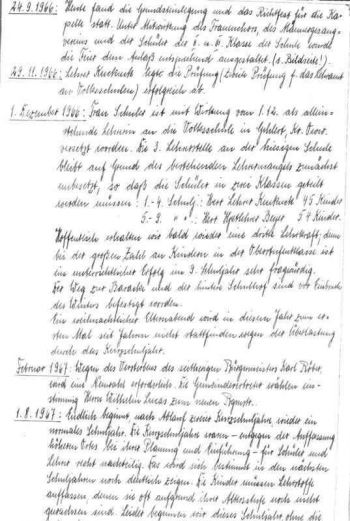 24.9.1966: Heute fand die Grundsteinlegung und das Richtfest für die Ka-
pelle statt. Unter Mitwirkung des Frauenchors, des Männergesang-
vereins und der Schüler des 5. u. 6. Klasse der Schule wurde
die Feier dem Anlaß entsprechend ausgestaltet (s. Bildseite!).
29.11.1966: Lehrer legte die Prüfung (zweite Prüfung f. das Lehramt
an Volksschulen) erfolgreich ab.
1. Dezember 1966: Frau Schulte ist mit Wirkung vom 1.12. als allein-
stehende Lehrerin an die Volksschule in
versetzt worden. Die 3. Lehrerstelle an der hiesigen Schule
bleibt auf Grund des bestehenden Lehrermangels zunächst
unbesetzt, so daß die Schüler in zwei Klassen geteilt
werden müssen: 1.-4. Schulj.: Herr Lehrer 45 Kinder
5.-9. " " : Herr Hptlehrer Beyer 54 Kinder.
Hoffentlich erhalten wir bald wieder eine dritte Lehrkraft, denn
bei der großen Zahl an Kindern in der Oberstufenklasse ist
ein unterrichtlicher Erfolg im 9. Schuljahr sehr fragwürdig.
Der Weg zur Baracke und der hintere Schulhof sind vor Einbruch
des Winters befestigt worden.
Ein weihnachtlicher Elternabend wird in diesem Jahr zum er-
sten Mal seit Jahren nicht stattfinden wegen der Überlastung
durch das Kurzschuljahr.
Februar 1967: Wegen des Verstorbenen des seitherigen Bürgermeisters Karl
wird eine Neuwahl erforderlich. Die Gemeindevertreter wählen ein-
stimmig Herrn Wilhelm Lucas zum neuen Bgmstr.
1.8.1967: Endlich beginnt nach Ablauf zweier Kurzschuljahre, wieder ein
normales Schuljahr. Die Kurzschuljahre waren - entgegen der Auffassung
höheren Ortes bei ihrer Planung und Einführung - für Schüler und
Lehrer recht nachteilig. Das wird sich bestimmt in den nächsten
Schuljahren noch deutlich zeigen. Die Kinder müssen Lehrstoffe
auffassen, denen sie oft aufgrund ihrer Altersstufe noch nicht
gewachsen sind. Leider beginnen wir dieses Schuljahr ohne die